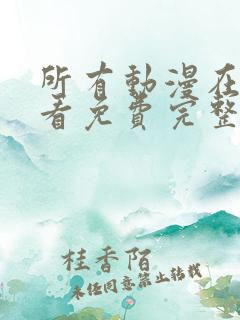 所有動漫在
看免費完整
桂香陌
未经同意禁止转载